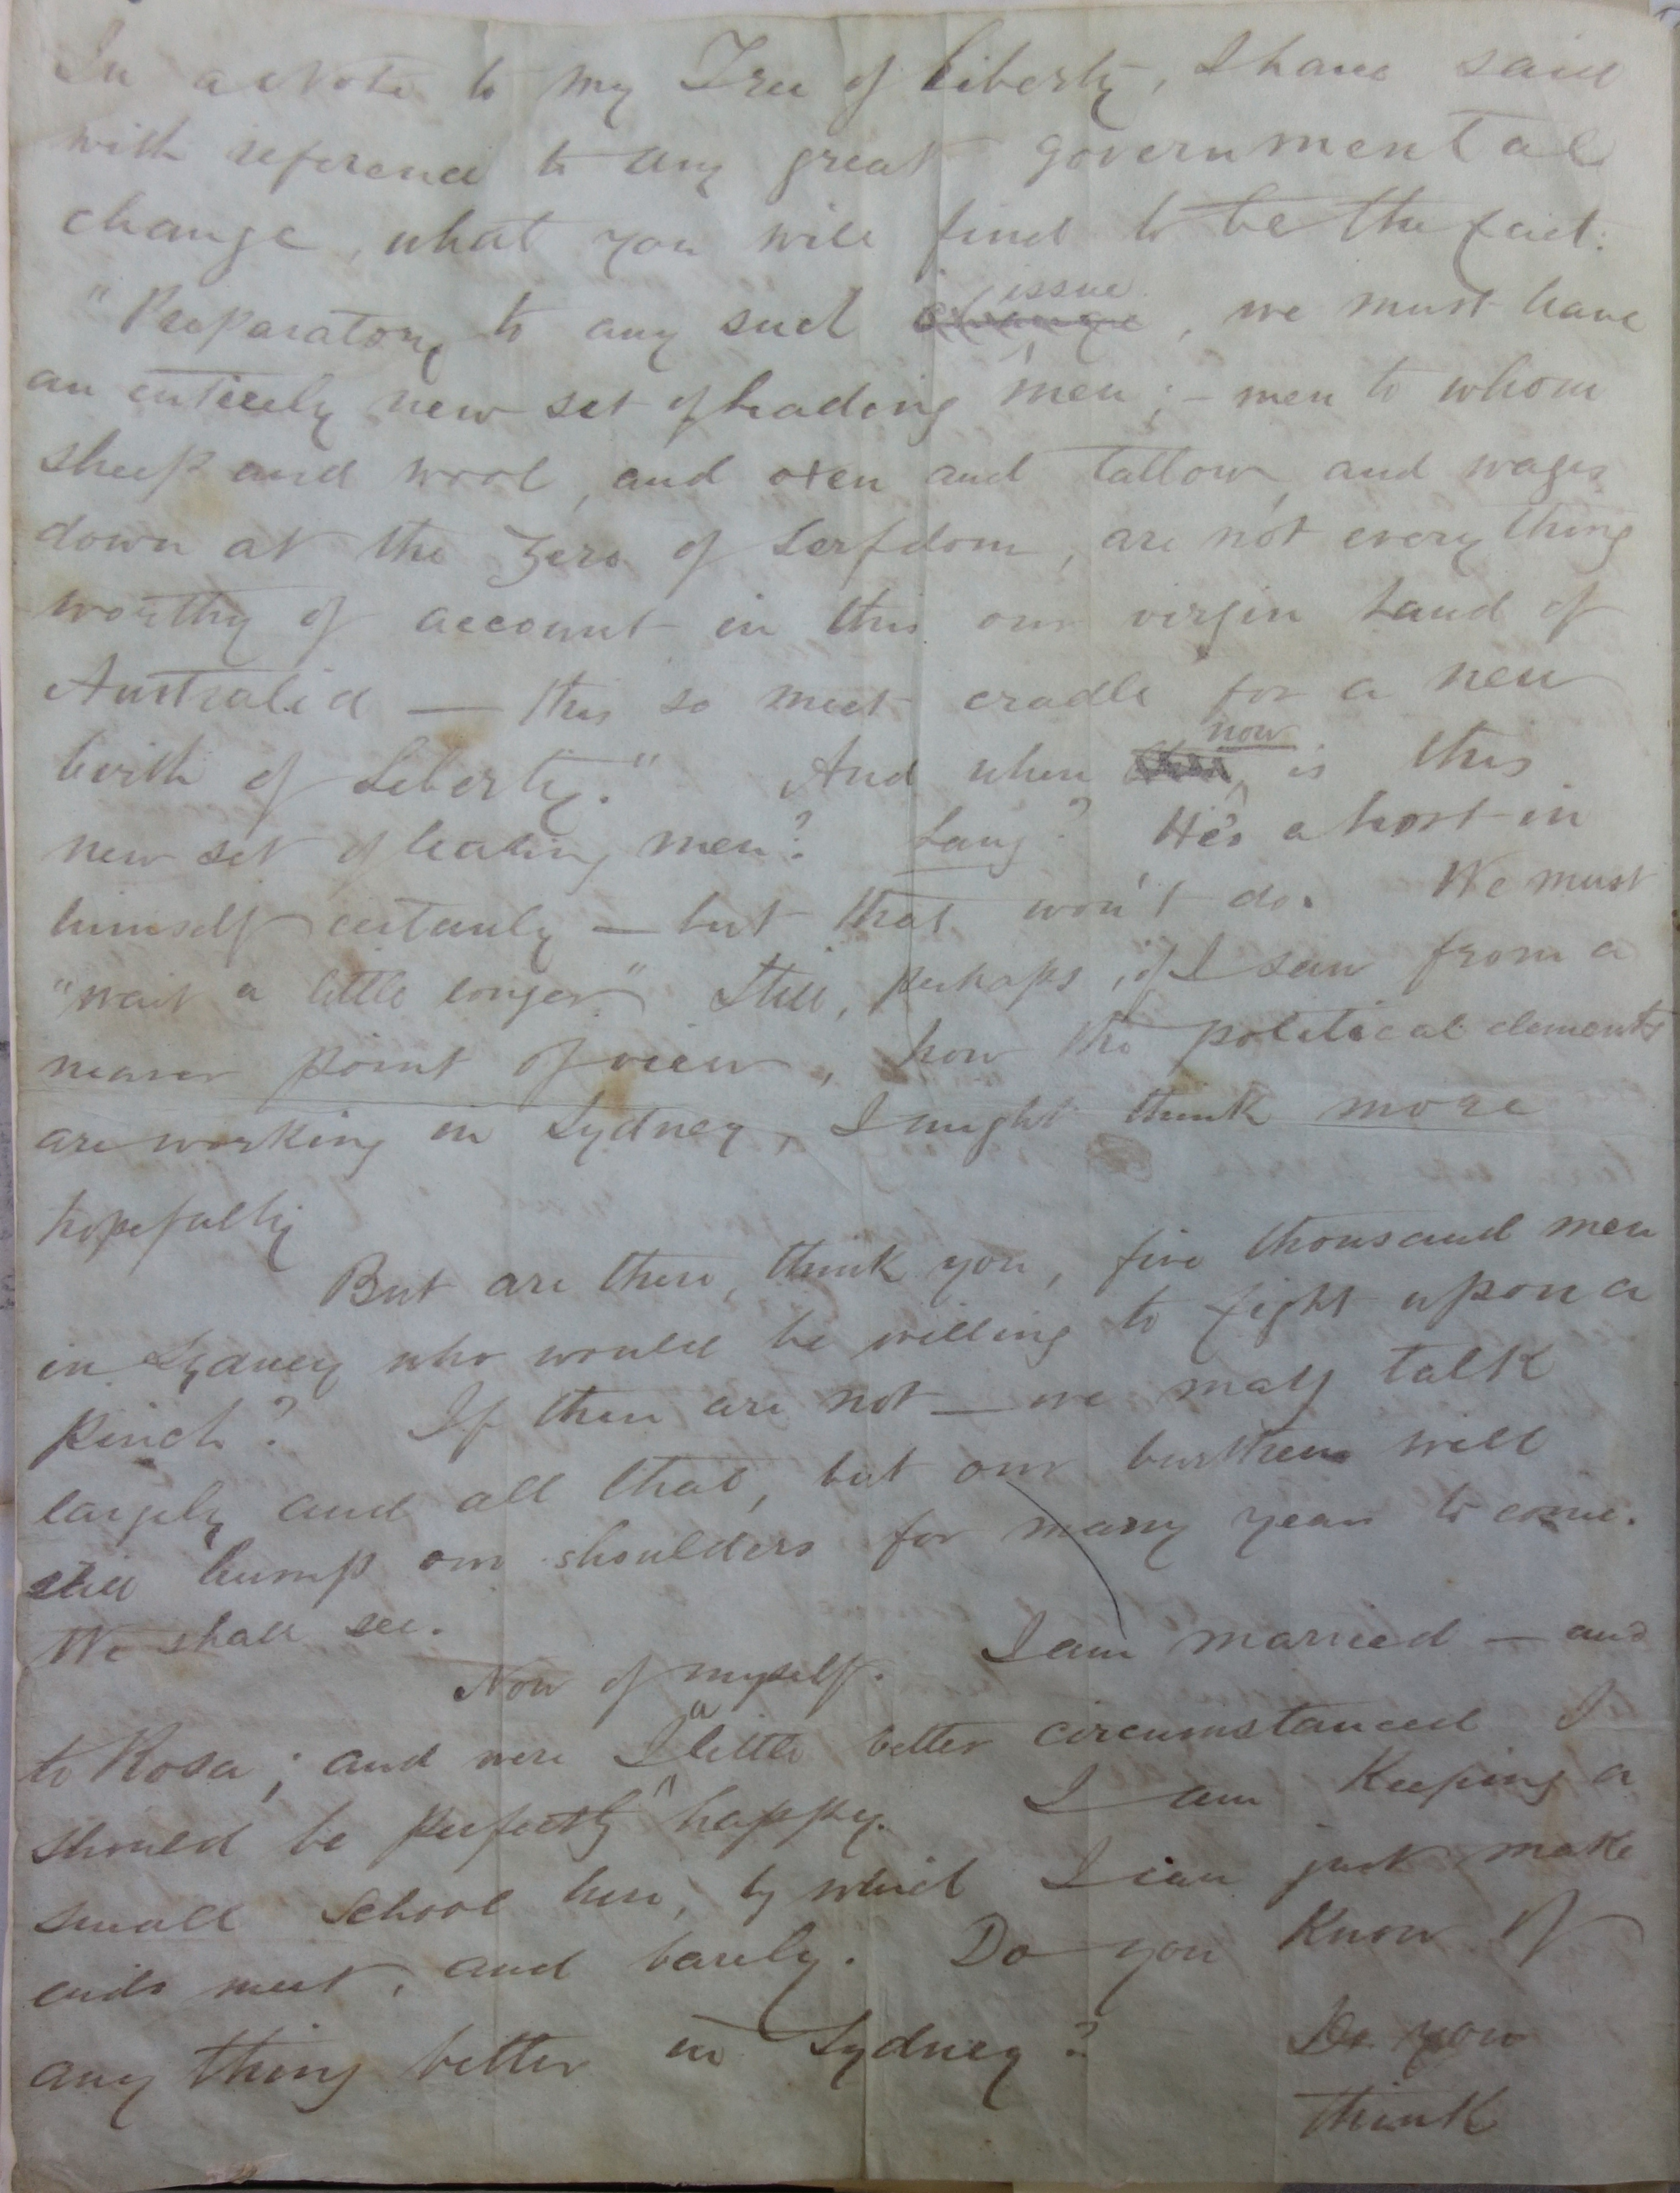 In a Note to my Tree of Liberty, I have said
with reference to any great governmental
change, what you will find to be the fact:
"Preparatory to any such change issue, we must have
an entirely new set of leading men; – men to whom
sheep and wool, and oxen and tallow, and wages
down at the Zero of Serfdom, are not every thing
worthy of account in this our virgin Land of
Australia — this so meet cradle for a new
birth of Liberty." And when now is this
new set of leading men? Lang? He's a host in
himself certainly — but that won't do. We must
"wait a little longer." Still, perhaps, if I saw from a
nearer point of view, how the political elements
are working in Sydney, I might think more
hopefully
But are there, think you, five thousand men
in Sydney who would be willing to fight upon a
pinch? If there are not — we may talk
largely and all that, but our burthens will
still hump our shoulders for many years to come.
We shall see.
Now of myself. I am married — and
to Rosa; and were I a little better circumstanced I
should be perfectly happy. I am Keeping a
small School here, by which I can just make
ends meet, and barely. Do you Know of
any thing better in Sydney? Do you
think